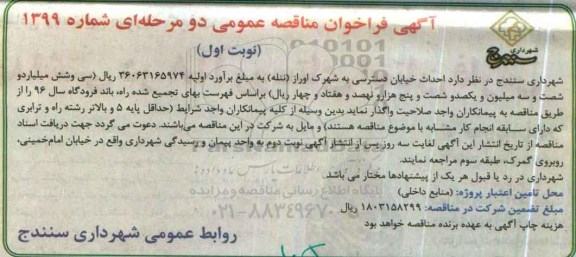 آگهی فراخوان مناقصه عمومی دو مرحله‌ای شماره ۱۳۹۹
(نوبت اول)
شهرداری
سنندج
شهرداری سنندج در نظر دارد احداث خیابان دسترسی به شهرک اوراز (ننله) به مبلغ برآورد اولیه ۳۶۰۶۳۱۶۵۹۷۴ ریال (سی وشش میلیاردو
شصت و سه میلیون و یکصدو شصت و پنج هزارو نهصد و هفتاد و چهار ریال) براساس فهرست بهای تجمیع شده راه، باند فرودگاه سال ۹۶ را از
طریق مناقصه به پیمانکاران واجد صلاحیت واگذار نماید بدین وسیله از کلیه پیمانکاران واجد شرایط (حداقل پایه ۵ و بالاتر رشته راه و ترابری
که دارای سابقه انجام کار مشابه با موضوع مناقصه هستند) و مایل به شرکت در این مناقصه می‌باشند. دعوت می گردد جهت دریافت اسناد
مناقصه از تاریخ انتشار این آگهی لغایت سه روز پس از انتشار آگهی نوبت دوم به واحد پیمان و رسیدگی شهرداری واقع در خیابان امام‌خمینی،
روبروی گمرک، طبقه سوم مراجعه نمایند.
شهرداری در رد یا قبول هر یک از پیشنهادها مختار می باشد.
محل تامین اعتبار پروژه: (منابع داخلی)
مبلغ تضمین شرکت در مناقصه: ۱۸۰۳۱۵۸۲۹۹ ریال
هزینه چاپ آگهی به عهده برنده مناقصه خواهد بود
پایگاه اطلاع رسانی مناقصه و مزایده
۰۲۱-۸۸۳۴۹۶۷۰
روابط عمومی شهرداری سنندج